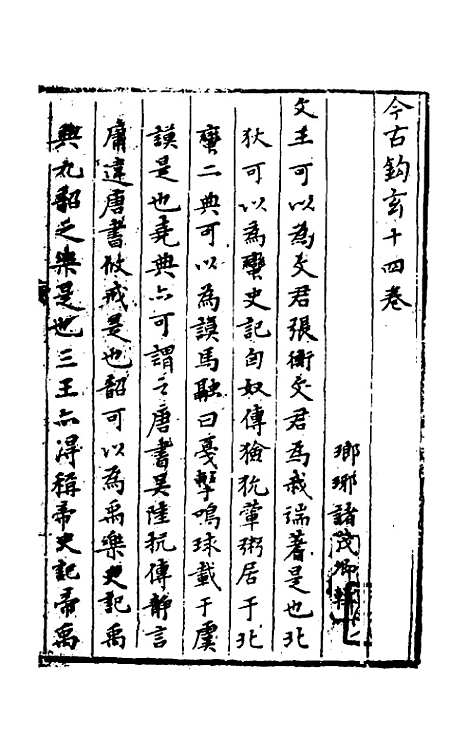 今古鈎玄十四卷
瑯琊諸茂卿輯
文王可以為文君張衡文君為我端蓍是也北
狄可以為蠻史記匈奴傳獫狁葷粥居于北
蠻二典可以為謨馬融曰戛擊鳴球載于虞
謨是也堯典亦可謂之唐書吴陸抗傳靜言
庸違唐書攸戒是也韶可以為禹樂史記禹
興九韶之樂是也三王亦得稱帝史記帝禹